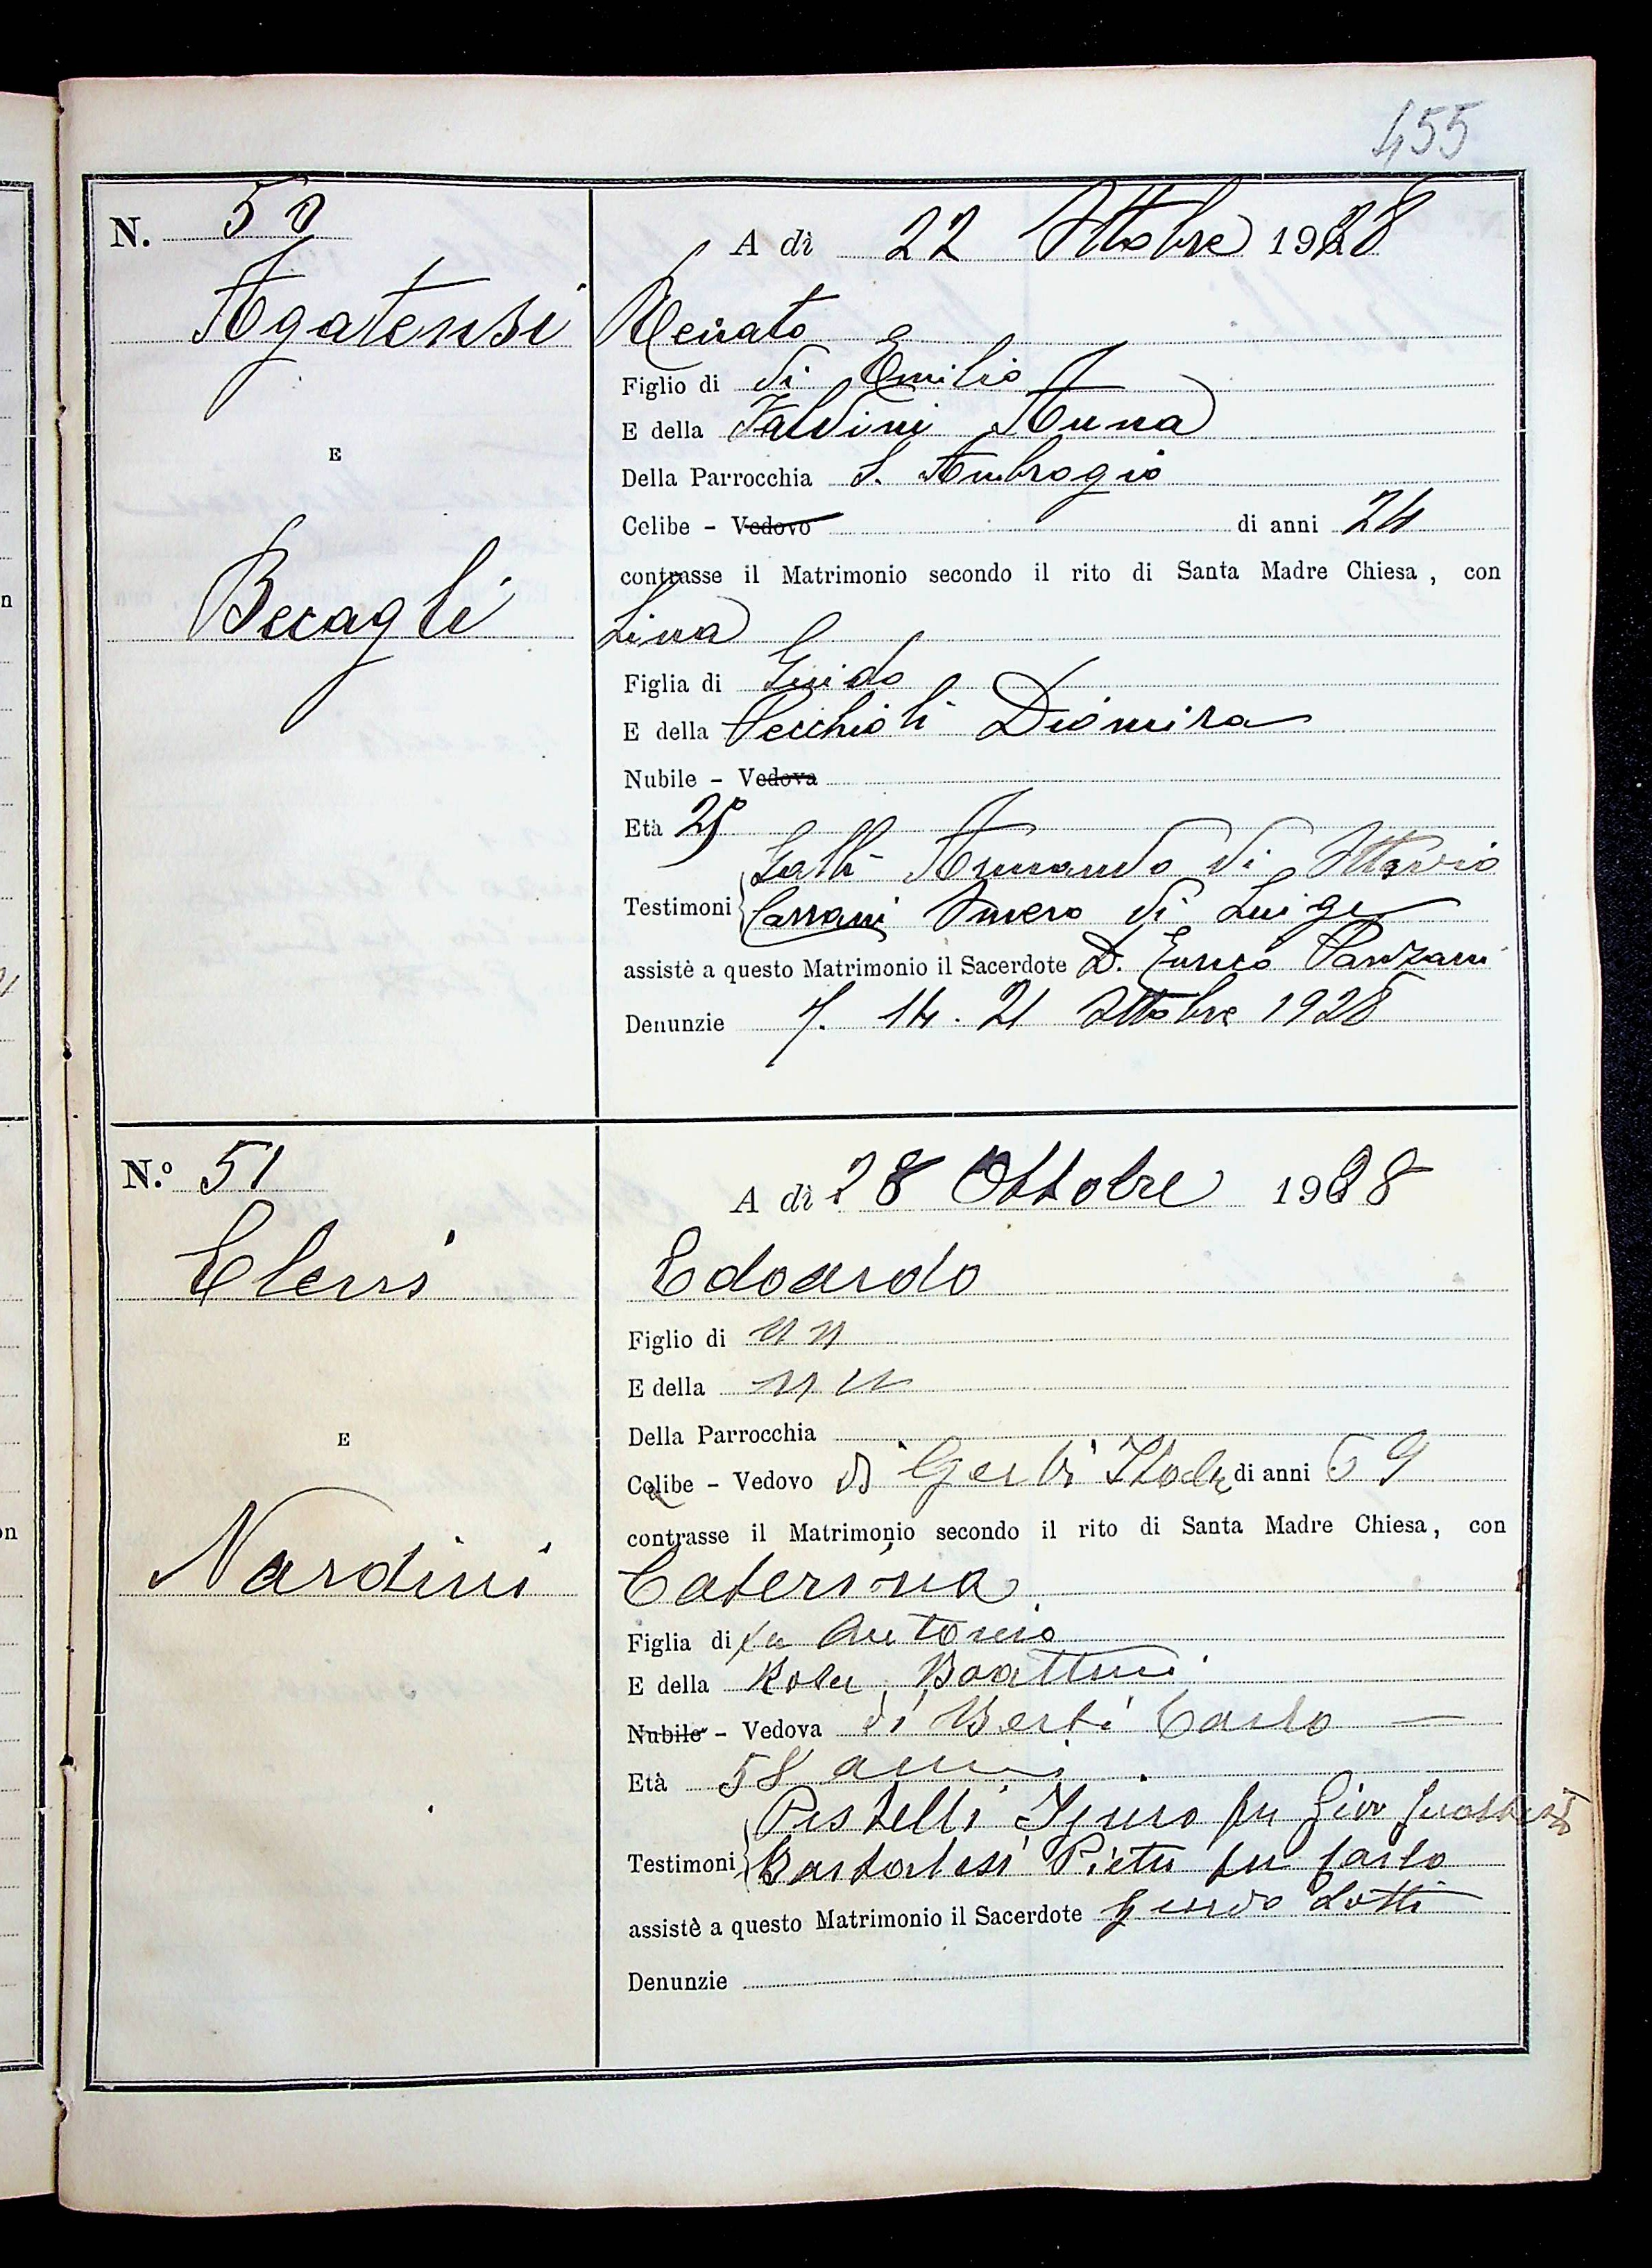 455
N. 50
A dì 22 Ottobre 1928
Agatensi
Renato
Figlio di di Emilio
E della Valdini Anna
E
Della Parrocchia S. Ambrogio
Celibe - Vedovo di anni 24
contrasse il Matrimonio secondo il rito di Santa Madre Chiesa, con
Becagli
Lina
Figlia di Guido
E della Vecchioli Diomira
Nubile - Vedova
Età 25
Galli Armando di Ottavio
Testimoni di Luigi
assistè a questo Matrimonio il Sacerdote D. Enrico Panzani
Denunzie 7. 14. 21 Ottobre 1928
N.º 51
A dì 28 Ottobre 1928
Clerri
Edoardo
Figlio di n n
E della n n
Della Parrocchia
E
Celibe - Vedovo di di anni 69
contrasse il Matrimonio secondo il rito di Santa Madre Chiesa, con
Nardini
Caterina
Figlia di fu Antonio
E della Rosa Boattini
Nubile - Vedova di Berti Carlo
Età 58 anni
Pistelli fu Giov
Testimoni Bartolesi Pietro fu Carlo
assistè a questo Matrimonio il Sacerdote Guido Lotti
Denunzie